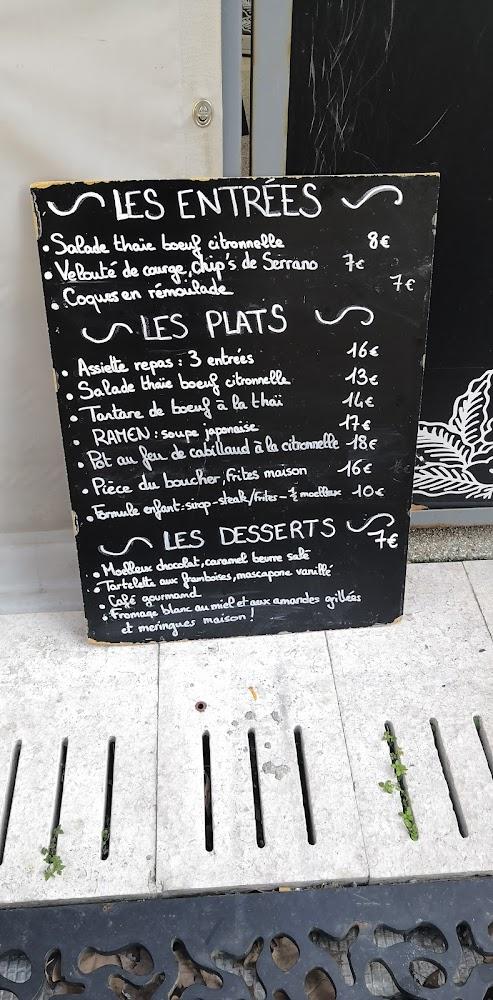 LES ENTRÉES
• Salade thaïe boeuf citronnelle 8€
• Velouté de courge, chip's de Serrano 7€
• Coques en rémoulade 7€
LES PLATS
• Assiette repas : 3 entrées 16€
• Salade thaïe boeuf citronnelle 13€
• Tartare de boeuf à la thaï 14€
• RAMEN : soupe japonaise 17€
• Pot au feu de cabillaud à la citronnelle 18€
• Pièce du boucher, frites maison 16€
• Formule enfant : sirop - steak/frites - ½ moelleux 10€
LES DESSERTS 7€
• Moelleux chocolat, caramel beurre salé
• Tartelette aux framboises, mascarpone vanillé
• Café gourmand
• Fromage blanc au miel et aux amandes grillées
et meringues maison !